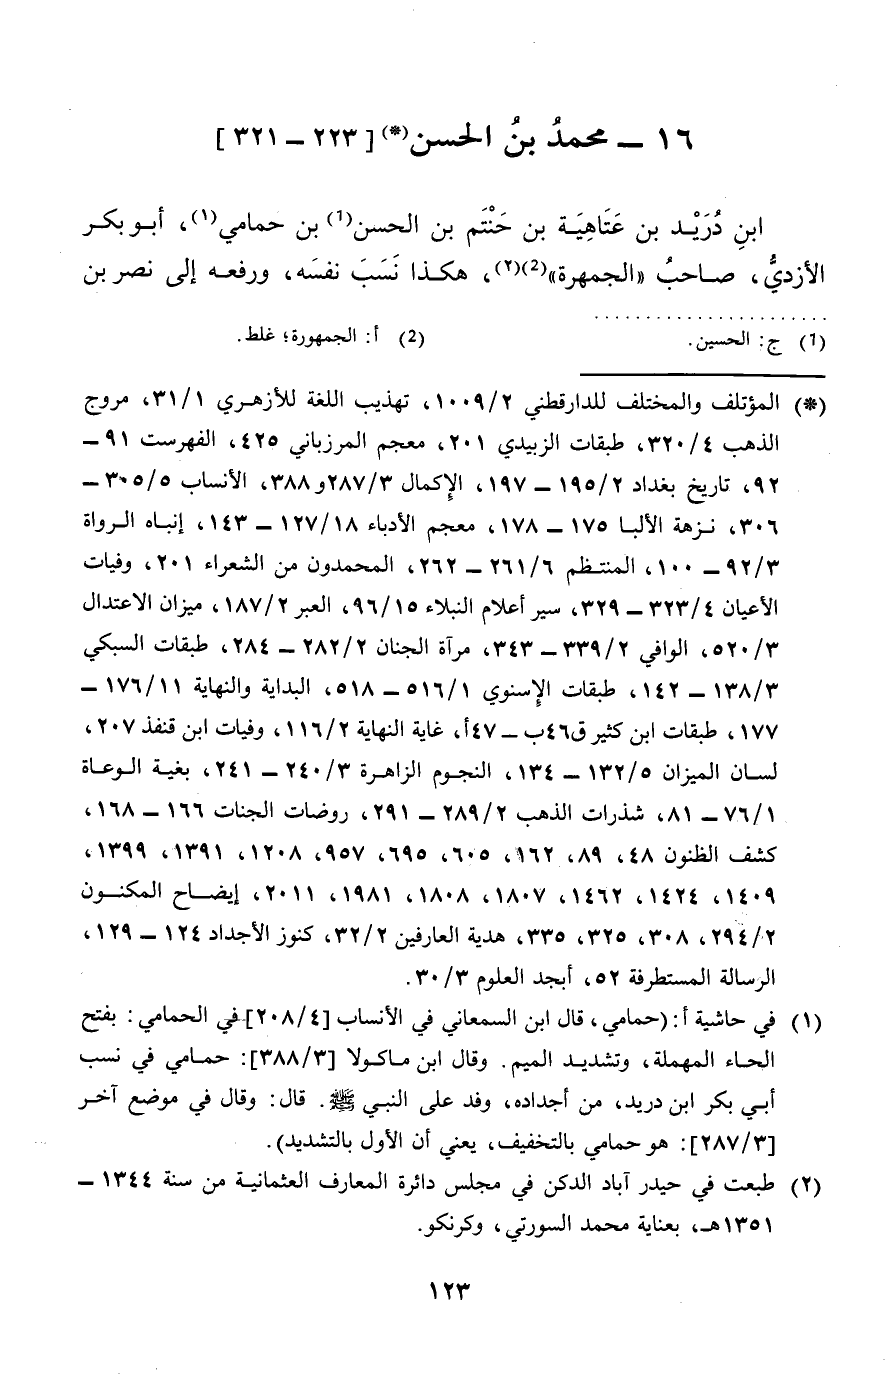 ١٦ ــ محمدُ بنُ الحسن(*) [ ٢٢٣ ــ ٣٢١ ]
ابنِ دُرَيْد بن عَتَاهِيَة بن حَنْتَم بن الحسن(1) بن حمامي(١)، أبو بكر
الأزديُّ، صاحبُ «الجمهرة»(2)(٢)، هكذا نَسَبَ نفسَه، ورفعه إلى نصر بن
(1) ج: الحسين. (2) أ: الجمهورة؛ غلط.
(*) المؤتلف والمختلف للدارقطني ١٠٠٩/٢، تهذيب اللغة للأزهري ٣١/١، مروج
الذهب ٣٢٠/٤، طبقات الزبيدي ٢٠١، معجم المرزباني ٤٢٥، الفهرست ٩١ ــ
٩٢، تاريخ بغداد ١٩٥/٢ ــ ١٩٧، الإكمال ٢٨٧/٣و٣٨٨، الأنساب ٣٠٥/٥ ــ
٣٠٦، نزهة الألبا ١٧٥ ــ ١٧٨، معجم الأدباء ١٢٧/١٨ ــ ١٤٣، إنباه الرواة
٩٢/٣ ــ ١٠٠، المنتظم ٢٦١/٦ ــ ٢٦٢، المحمدون من الشعراء ٢٠١، وفيات
الأعيان ٣٢٣/٤ ــ ٣٢٩، سير أعلام النبلاء ٩٦/١٥، العبر ١٨٧/٢، ميزان الاعتدال
٥٢٠/٣، الوافي ٣٣٩/٢ ــ ٣٤٣، مرآة الجنان ٢٨٢/٢ ــ ٢٨٤، طبقات السبكي
١٣٨/٣ ــ ١٤٢، طبقات الإسنوي ٥١٦/١ ــ ٥١٨، البداية والنهاية ١٧٦/١١ ــ
١٧٧، طبقات ابن كثير ق٤٦ب ــ ٤٧أ، غاية النهاية ١١٦/٢، وفيات ابن قنفذ ٢٠٧،
لسان الميزان ١٣٢/٥ ــ ١٣٤، النجوم الزاهرة ٢٤٠/٣ ــ ٢٤١، بغية الوعاة
٧٦/١ ــ ٨١، شذرات الذهب ٢٨٩/٢ ــ ٢٩١، روضات الجنات ١٦٦ ــ ١٦٨،
كشف الظنون ٤٨، ٨٩، ١٦٢، ٦٠٥، ٦٩٥، ٩٥٧، ١٢٠٨، ١٣٩١، ١٣٩٩،
١٤٠٩، ١٤٢٤، ١٤٦٢، ١٨٠٧، ١٨٠٨، ١٩٨١، ٢٠١١، إيضاح المكنون
٢٩٤/٢، ٣٠٨، ٣٢٥، ٣٣٥، هدية العارفين ٣٢/٢، كنوز الأجداد ١٢٤ ــ ١٢٩،
الرسالة المستطرفة ٥٢، أبجد العلوم ٣٠/٣.
(١) في حاشية أ: (حمامي، قال ابن السمعاني في الأنساب [٢٠٨/٤] في الحمامي: بفتح
الحاء المهملة، وتشديد الميم. وقال ابن ماكولا [٣٨٨/٣]: حمامي في نسب
أبي بكر ابن دريد، من أجداده، وفد على النبي ﷺ. قال: وقال في موضع آخر
[٢٨٧/٣]: هو حمامي بالتخفيف، يعني أن الأول بالتشديد).
(٢) طبعت في حيدر آباد الدكن في مجلس دائرة المعارف العثمانية من سنة ١٣٤٤ ــ
١٣٥١هـ، بعناية محمد السورتي، وكرنكو.
١٢٣